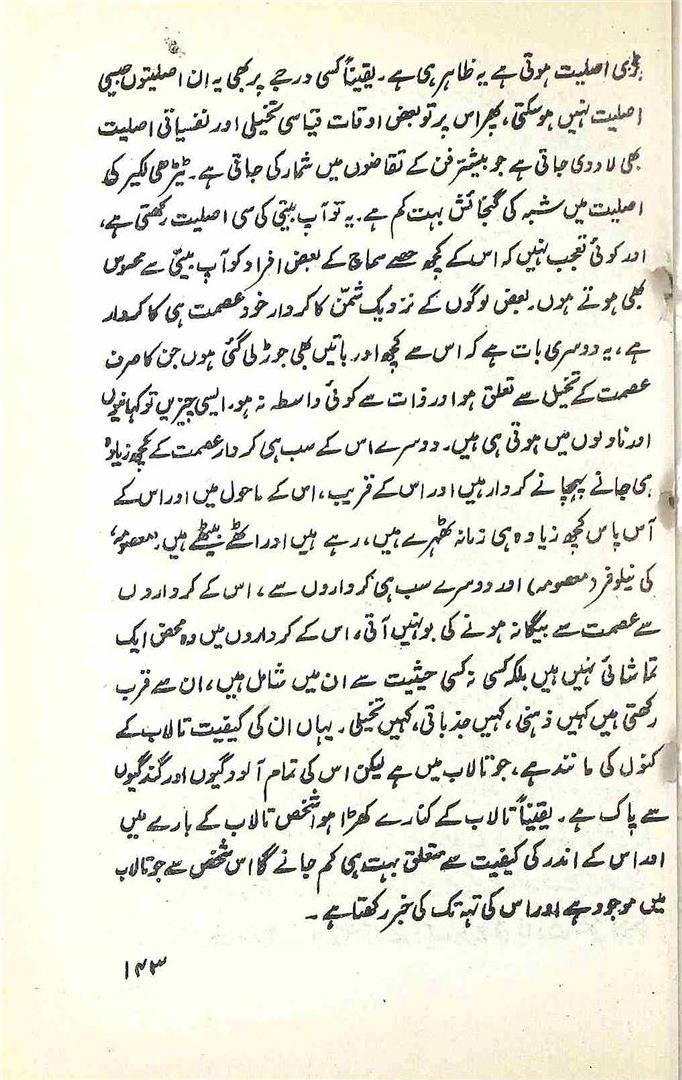 بڑی اصلیت ہوتی ہے یہ ظاہر ہی ہے۔ یقیناً کسی درجے پر بھی یہ ان اصلیتوں جیسی
اصلیت نہیں ہو سکتی، پھر اس پر تو بعض اوقات قیاسی تخیلی اور نفسیاتی اصلیت
بھی لادی جاتی ہے جو بیشتر فن کے تقاضوں میں شمار کی جاتی ہے۔ ٹیڑھی لکیر کی
اصلیت میں شبہ کی گنجائش بہت کم ہے۔ یہ تو آپ بیتی کی سی اصلیت رکھتی ہے،
اور کوئی تعجب نہیں کہ اس کے کچھ حصے سماج کے بعض افراد کو آپ بیتی سے محسوس
بھی ہوتے ہوں۔ بعض لوگوں کے نزدیک شمّن کا کردار خود عصمت ہی کا کردار
ہے، یہ دوسری بات ہے کہ اس سے کچھ اور باتیں بھی جوڑ لی گئی ہوں جن کا صرف
عصمت کے تخیل سے تعلق ہو اور ذات سے کوئی واسطہ نہ ہو۔ ایسی چیزیں تو کہانیوں
اور ناولوں میں ہوتی ہی ہیں۔ دوسرے اس کے سب ہی کردار عصمت کے کچھ زیادہ
ہی جانے پہچانے کردار ہیں اور اس کے قریب، اس کے ماحول میں اور اس کے
آس پاس کچھ زیادہ ہی زمانہ ٹھہرے ہیں، رہے ہیں اور اٹھے بیٹھے ہیں۔ 'معصومہ'
کی نیلوفر (معصومہ) اور دوسرے سب ہی کرداروں سے، اس کے کرداروں
سے عصمت سے بیگانہ ہونے کی بو نہیں آتی، اس کے کرداروں میں وہ محض ایک
تماشائی نہیں ہیں بلکہ کسی نہ کسی حیثیت سے ان میں شامل ہیں، ان سے قرب
رکھتی ہیں کہیں ذہنی، کہیں جذباتی، کہیں تخیلی۔ یہاں ان کی کیفیت تالاب کے
کنول کی مانند ہے، جو تالاب میں ہے لیکن اس کی تمام آلودگیوں اور گندگیوں
سے پاک ہے۔ یقیناً تالاب کے کنارے کھڑا ہوا شخص تالاب کے بارے میں
اور اس کے اندر کی کیفیت سے متعلق بہت ہی کم جانے گا اس شخص سے جو تالاب
میں موجود ہے اور اس کی تہہ تک کی خبر رکھتا ہے۔
۱۴۳